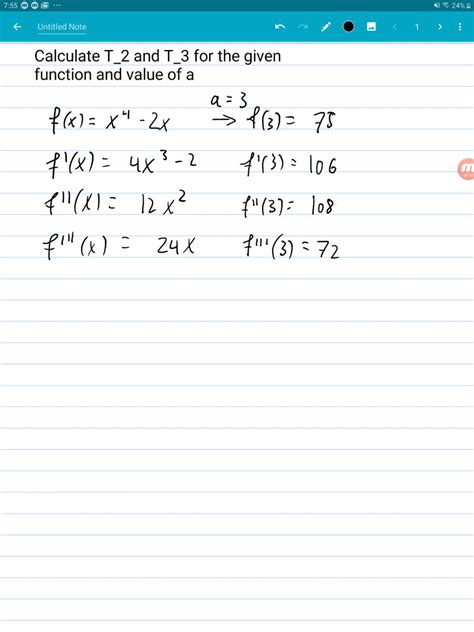 7:55 24%
Untitled Note 1
Calculate T_2 and T_3 for the given
function and value of a
a = 3
f(x) = x⁴ - 2x → f(3) = 75
f'(x) = 4x³ - 2 f'(3) = 106
f''(x) = 12x² f''(3) = 108
f'''(x) = 24x f'''(3) = 72